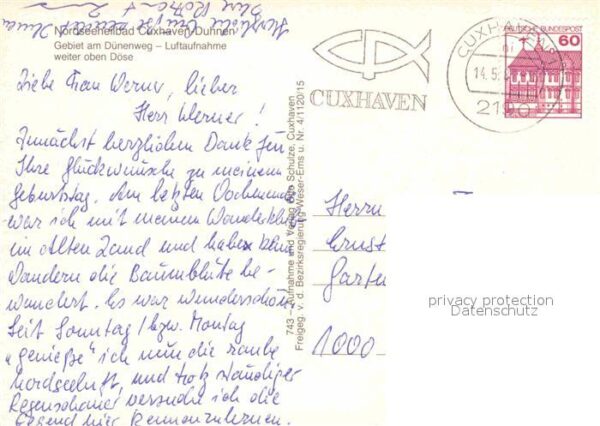 Nordseeheilbad Cuxhaven/Duhnen
Gebiet am Dünenweg – Luftaufnahme
weiter oben Döse
Liebe Frau Werner, lieber
Herr Werner!
Zunächst herzlichen Dank für
Ihre Glückwünsche zu meinem
Geburtstag. Am letzten Wochenende
war ich mit meinem Wanderklub
im Alten Land und haben beim
Wandern die Baumblüte be-
wundert. Es war wunderschön.
Seit Sonntag/bzw. Montag
„genieße" ich nun die rauhe
Nordseeluft, und trotz ständiger
Regenschauer versuche ich die
Gegend hier kennenzulernen.
Herzliche Grüße sendet Ihnen
Ihre
743 – Aufnahme und Verlag Schulze, Cuxhaven
Freigeg. v. d. Bezirksregierung Weser-Ems u. Nr. 4/1120/15
CUXHAVEN
CUXHAVEN
14.5.
DEUTSCHE BUNDESPOST
60
Herrn
Ernst
Garten
1000
privacy protection
Datenschutz